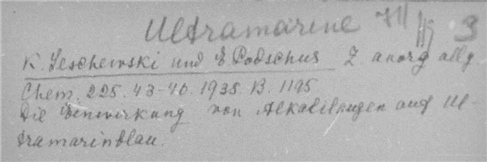 Ultramarine 3
K. Leschewski und E Podschus Z anorg allg
Chem. 225. 43-46. 1935. B. 1195
Die Einwirkung von Alkalilaugen auf Ul-
tramarinblau.